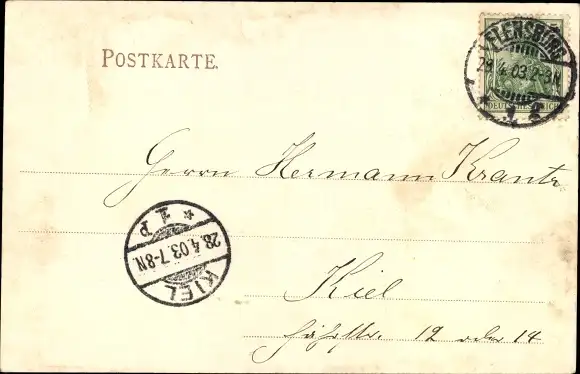 POSTKARTE.
FLENSBURG
4.03.2-3N
* 1 g
DEUTSCHES REICH
Herrn Hermann Krantz
* I P
28.4.03.7-8N.
KIEL
Kiel
12 oder 14